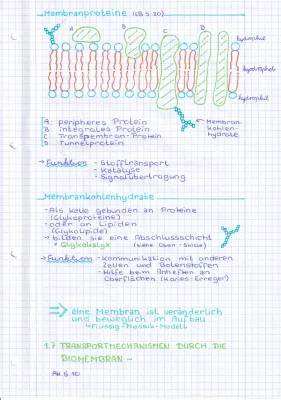 Membranproteine (LB S.20)
A B C D
hydrophil
hydrophob
hydrophil
Membran-
kohlen-
hydrate
A: peripheres Protein
B: integrales Protein
C: Transmembran-Protein
D: Tunnelprotein
→ Funktion - Stofftransport
- Katalyse
- Signalübertragung
Membrankohlenhydrate
- Als Kette gebunden an Proteine
(Glykoproteine)
- oder an Lipiden
(Glykolipide)
- bilden sie eine Abschlussschicht
* Glykokalyx
→ Funktion - Kommunikation mit anderen
Zellen und Botenstoffen
- Hilfe beim Anheften an
Oberflächen (Karies-Erreger)
⇒ eine Membran ist veränderlich
und beweglich im Aufbau
↳ Flüssig-Mosaik-Modell
1.7 TRANSPORTMECHANISMEN DURCH DIE
BIOMEMBRAN ~